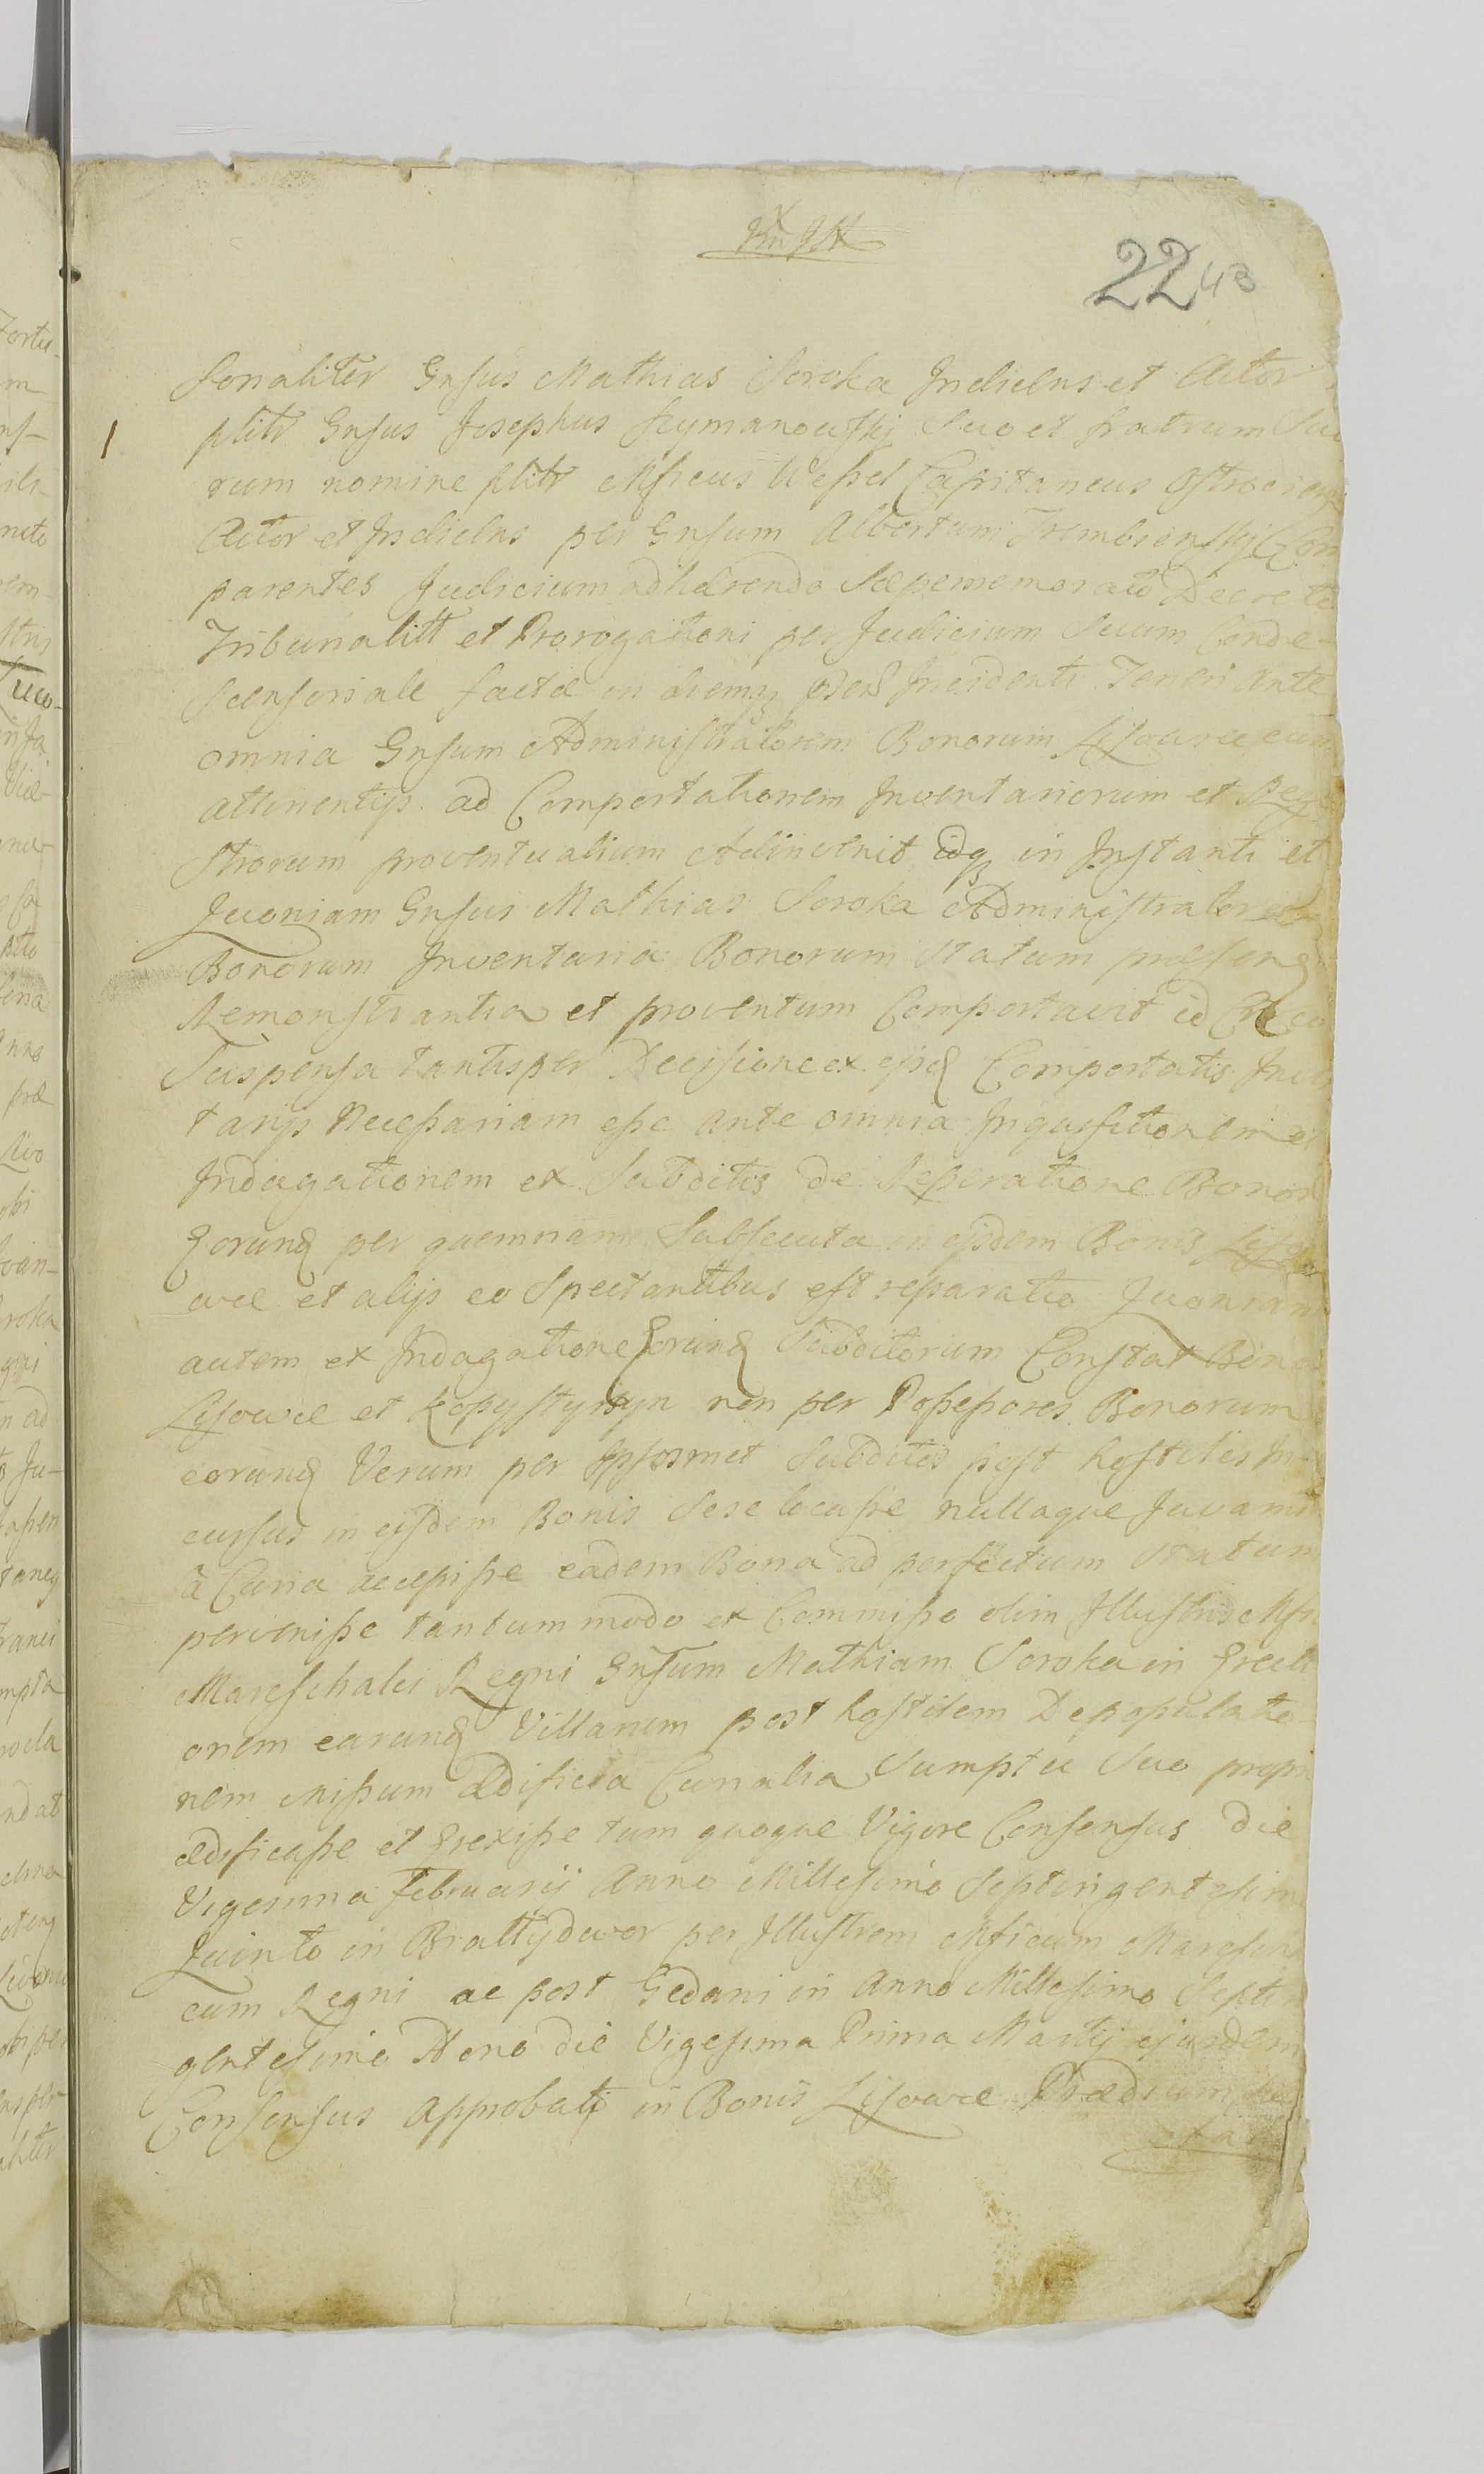 22 43
sonaliter Gnsus Mathias Soroka Indiclns et Actor
1 plitr Gnsus Josephus Szymanowskj Suo et fratrum Suo
rum nomine plitr Mficus Wessel Capitaneus Ostroviens
Actor et Indiclns per Gnsum Albertum Trembienskj Com
parentes Judicium adhærendo Sæpememorato Decreto
Tribunalitt et Prorogationi per Judicium Suum Conde-
scensoriale factæ in diemq Incidenti Teneri ante
omnia Gnsum Administratorem Bonorum Lisowce cum
attinentijs ad Comportationem Inventariorum et Regi
strorum proventualium Adinvenit idq in Instanti et
Quoniam Gnsus Mathias Soroka Administrator
Bonorum Inventaria Bonorum Statum præsen
Remonstrantia et proventum Comportavit id
Suspensa tantisper Decisione ex ejsd Comportatis Inven
tarijs Necessariam esse ante omnia Inquisitionem et
Indagationem ex Subditis de Reperatione Bonor
Eorund per quemnam Subsecuta in ejsdem Bonis Liso
wce et alijs eo Spectantibus est reparatio Quoniam
autem ex Indagatione Eorund Subditorum Constat Bona
Lisowce et Kopystyńyn non per Possessores Bonorum
eorund Verum per Ipsosmet Subditos post hostiles In
cursus in eisdem Bonis Sese locasse nullaque Juvamin
à Curia accepisse eadem Bona ad perfectum Statum
pervenisse tantummodo ex Commisso olim Illustris Mfci
Mareschalci Regni Gnsum Mathiam Soroka in Erecti
onem earund Villarum post hostilem Depopulatio
nem missum ædificia Curialia Sumptu Suo propri
ædificasse et Erexisse tum quoque Vigore Consensus die
Vigesima Februarij Anno Millesimo Septingentesimo
Quinto in Brattydwor per Illustrem Mficum Mareschal
cum Regni ac post Gedani in Anno Millesimo Septin
gentesimo Nono die Vigesima Prima Martij ejusdem
Consensus Approbati in Bonis Lisowce Prædium